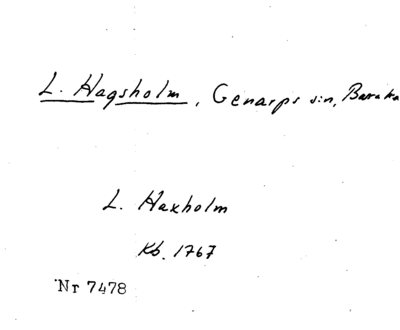 L. Hagsholm, Genarps sn, Bara
L. Haxholm
Kb. 1767
Nr 7478